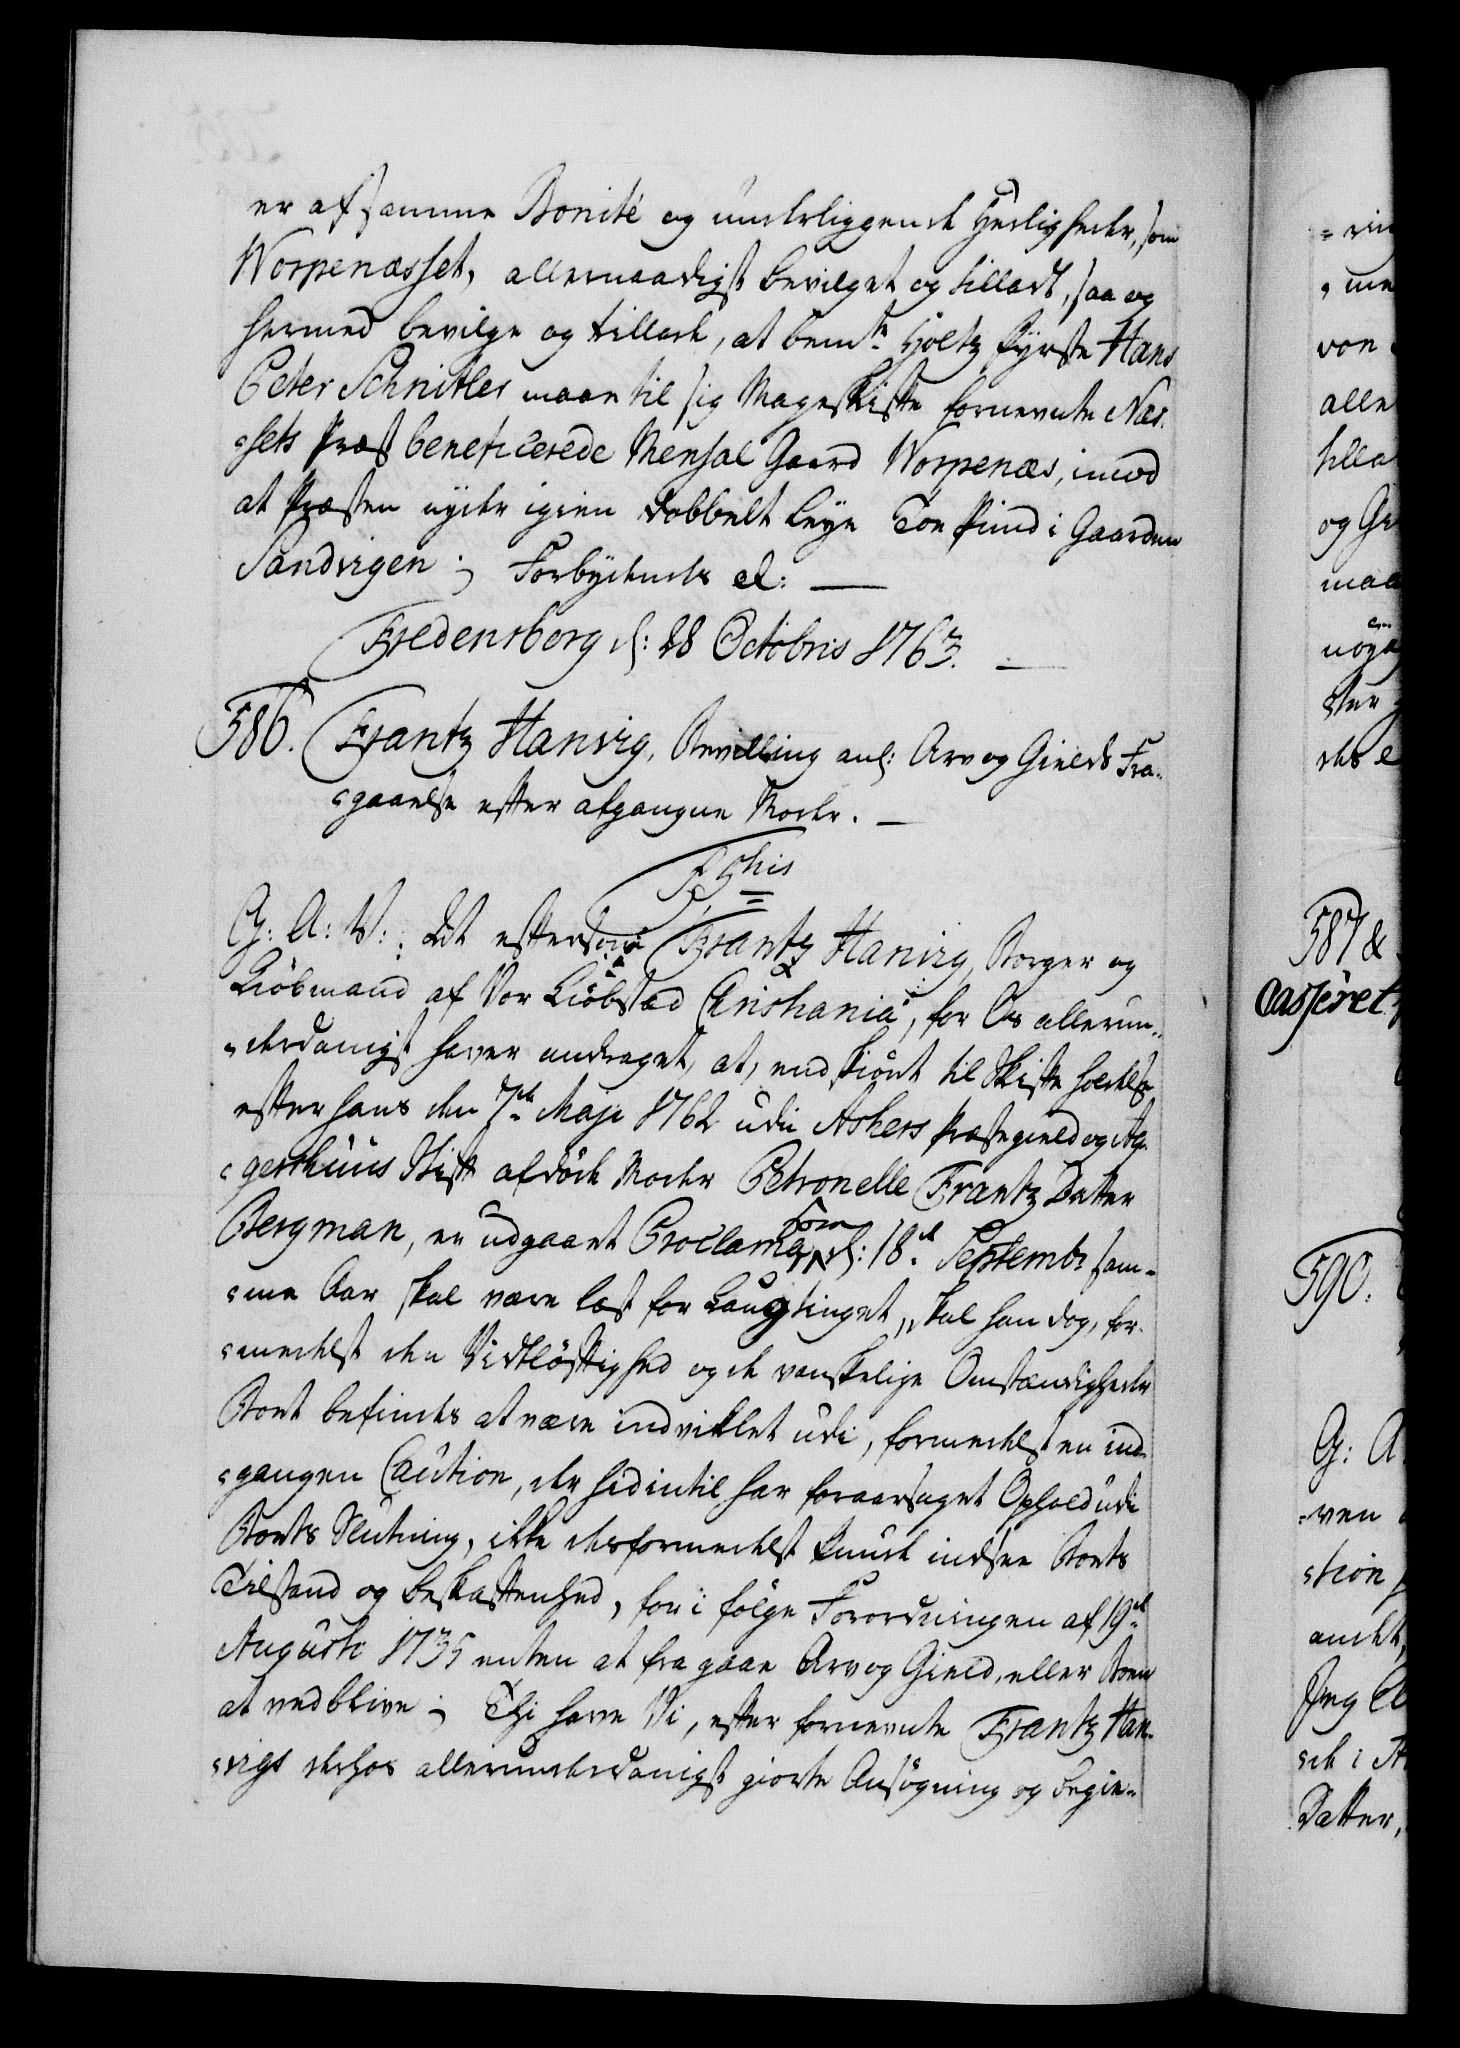 er af samme Bonité og underliggende Herligheder, som
Worpenæsset, allernaadigst bevilget og tilladt, saa og
hermed bevilge og tillade, at bemte Holtz Fyrste Hans
Peter Schnitler maae til sig Mageskifte fornevnte Næs-
sets Præst beneficerede Mensal Gaard Worpenæs, imod
at Præsten nyder igien dobbelt Leye Toe Pund i Gaarden
Sandvigen; Forbydendes etc: —
Fredensborg d: 28 Octobris 1763. —
586. Frantz Hanvig, Bevilling anl: Arv og Gields Fra-
gaaelse efter afgangne Moder. —
F 5his
G: A: V: At eftersom Frantz Hanvig, Borger og
Kiöbmand af Vor Kiöbstad Christiania, for Os allerun-
derdanigst haver andraget, at, endskiönt til Skifte holdelse
efter hans den 7de Maji 1762 udi Askers Præstegield og Ag-
gershuus Stift afdöde Moder Petronelle Frantz Datter
Bergman, er udgaaet Proclama, som d: 18de Septembr sam-
me Aar skal være læst for Laugtinget, skal han dog, for-
medelst den Vidtlöftighed og de vanskelige Omstændigheder
Boet befindes at være indviklet udi, formedelst en ind-
gangen Caution, der hidintil har foraarsaget Ophold udi
Boets Slutning, ikke desformedelst kunde indsee Boets
Tilstand og Beskaffenhed, for i fölge Forordningen af 19de
Augusti 1735 enten at fragaae Arv og Gield, eller Boen
at vedblive; Thi have Vi, efter fornevnte Frantz Han-
vigs derhos allerunderdanigst giorte Ansögning og Begie-
587 &
Casseret
590.
G: A
Datter,